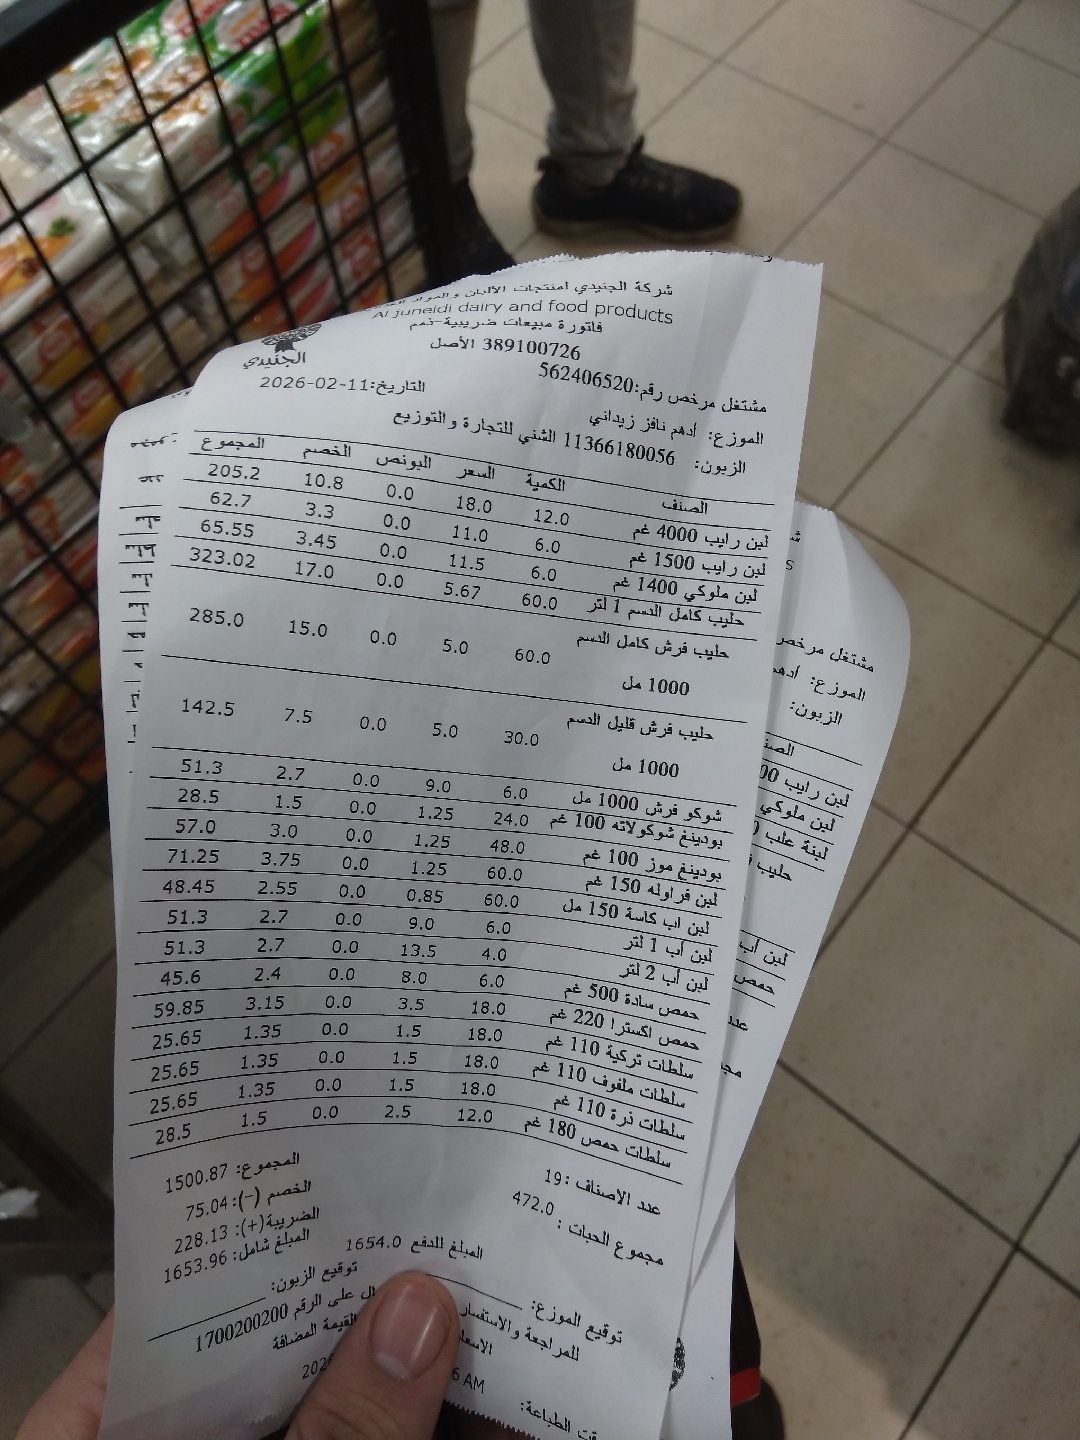 شركة الجنيدي لمنتجات الألبان والمواد
Al juneidi dairy and food products
فاتورة مبيعات ضريبية-ذمم
389100726 الأصل
الجنيدي
مشتغل مرخص رقم:562406520
التاريخ:2026-02-11
الموزع: أدهم نافز زيداني
الزبون: 11366180056 الشني للتجارة والتوزيع
الصنف الكمية السعر البونص الخصم المجموع
لبن رايب 4000 غم 12.0 18.0 0.0 10.8 205.2
لبن رايب 1500 غم 6.0 11.0 0.0 3.3 62.7
لبن ملوكي 1400 غم 6.0 11.5 0.0 3.45 65.55
حليب كامل الدسم 1 لتر 60.0 5.67 0.0 17.0 323.02
حليب فرش كامل الدسم 60.0 5.0 0.0 15.0 285.0
1000 مل
حليب فرش قليل الدسم 30.0 5.0 0.0 7.5 142.5
1000 مل
شوكو فرش 1000 مل 6.0 9.0 0.0 2.7 51.3
بودينغ شوكولاته 100 غم 24.0 1.25 0.0 1.5 28.5
بودينغ موز 100 غم 48.0 1.25 0.0 3.0 57.0
لبن فراوله 150 غم 60.0 1.25 0.0 3.75 71.25
لبن اب كاسة 150 مل 60.0 0.85 0.0 2.55 48.45
لبن أب 1 لتر 6.0 9.0 0.0 2.7 51.3
لبن أب 2 لتر 4.0 13.5 0.0 2.7 51.3
حمص سادة 500 غم 6.0 8.0 0.0 2.4 45.6
حمص اكسترا 220 غم 18.0 3.5 0.0 3.15 59.85
سلطات تركية 110 غم 18.0 1.5 0.0 1.35 25.65
سلطات ملفوف 110 غم 18.0 1.5 0.0 1.35 25.65
سلطات ذرة 110 غم 18.0 1.5 0.0 1.35 25.65
سلطات حمص 180 غم 12.0 2.5 0.0 1.5 28.5
عدد الاصناف :19
مجموع الحبات : 472.0
المجموع: 1500.87
الخصم (-): 75.04
الضريبة(+): 228.13
المبلغ شامل: 1653.96
المبلغ للدفع 1654.0
توقيع الموزع:
توقيع الزبون:
للمراجعة والاستفسار
ال على الرقم 1700200200
الاسعار
القيمة المضافة
قت الطباعة:
6 AM
202
مشتغل مرخص
الموزع: أدهم
الزبون:
الصنف
لبن رايب
لبن ملوكي
لبنة علب
حليب
لبن أب
حمص
عدد